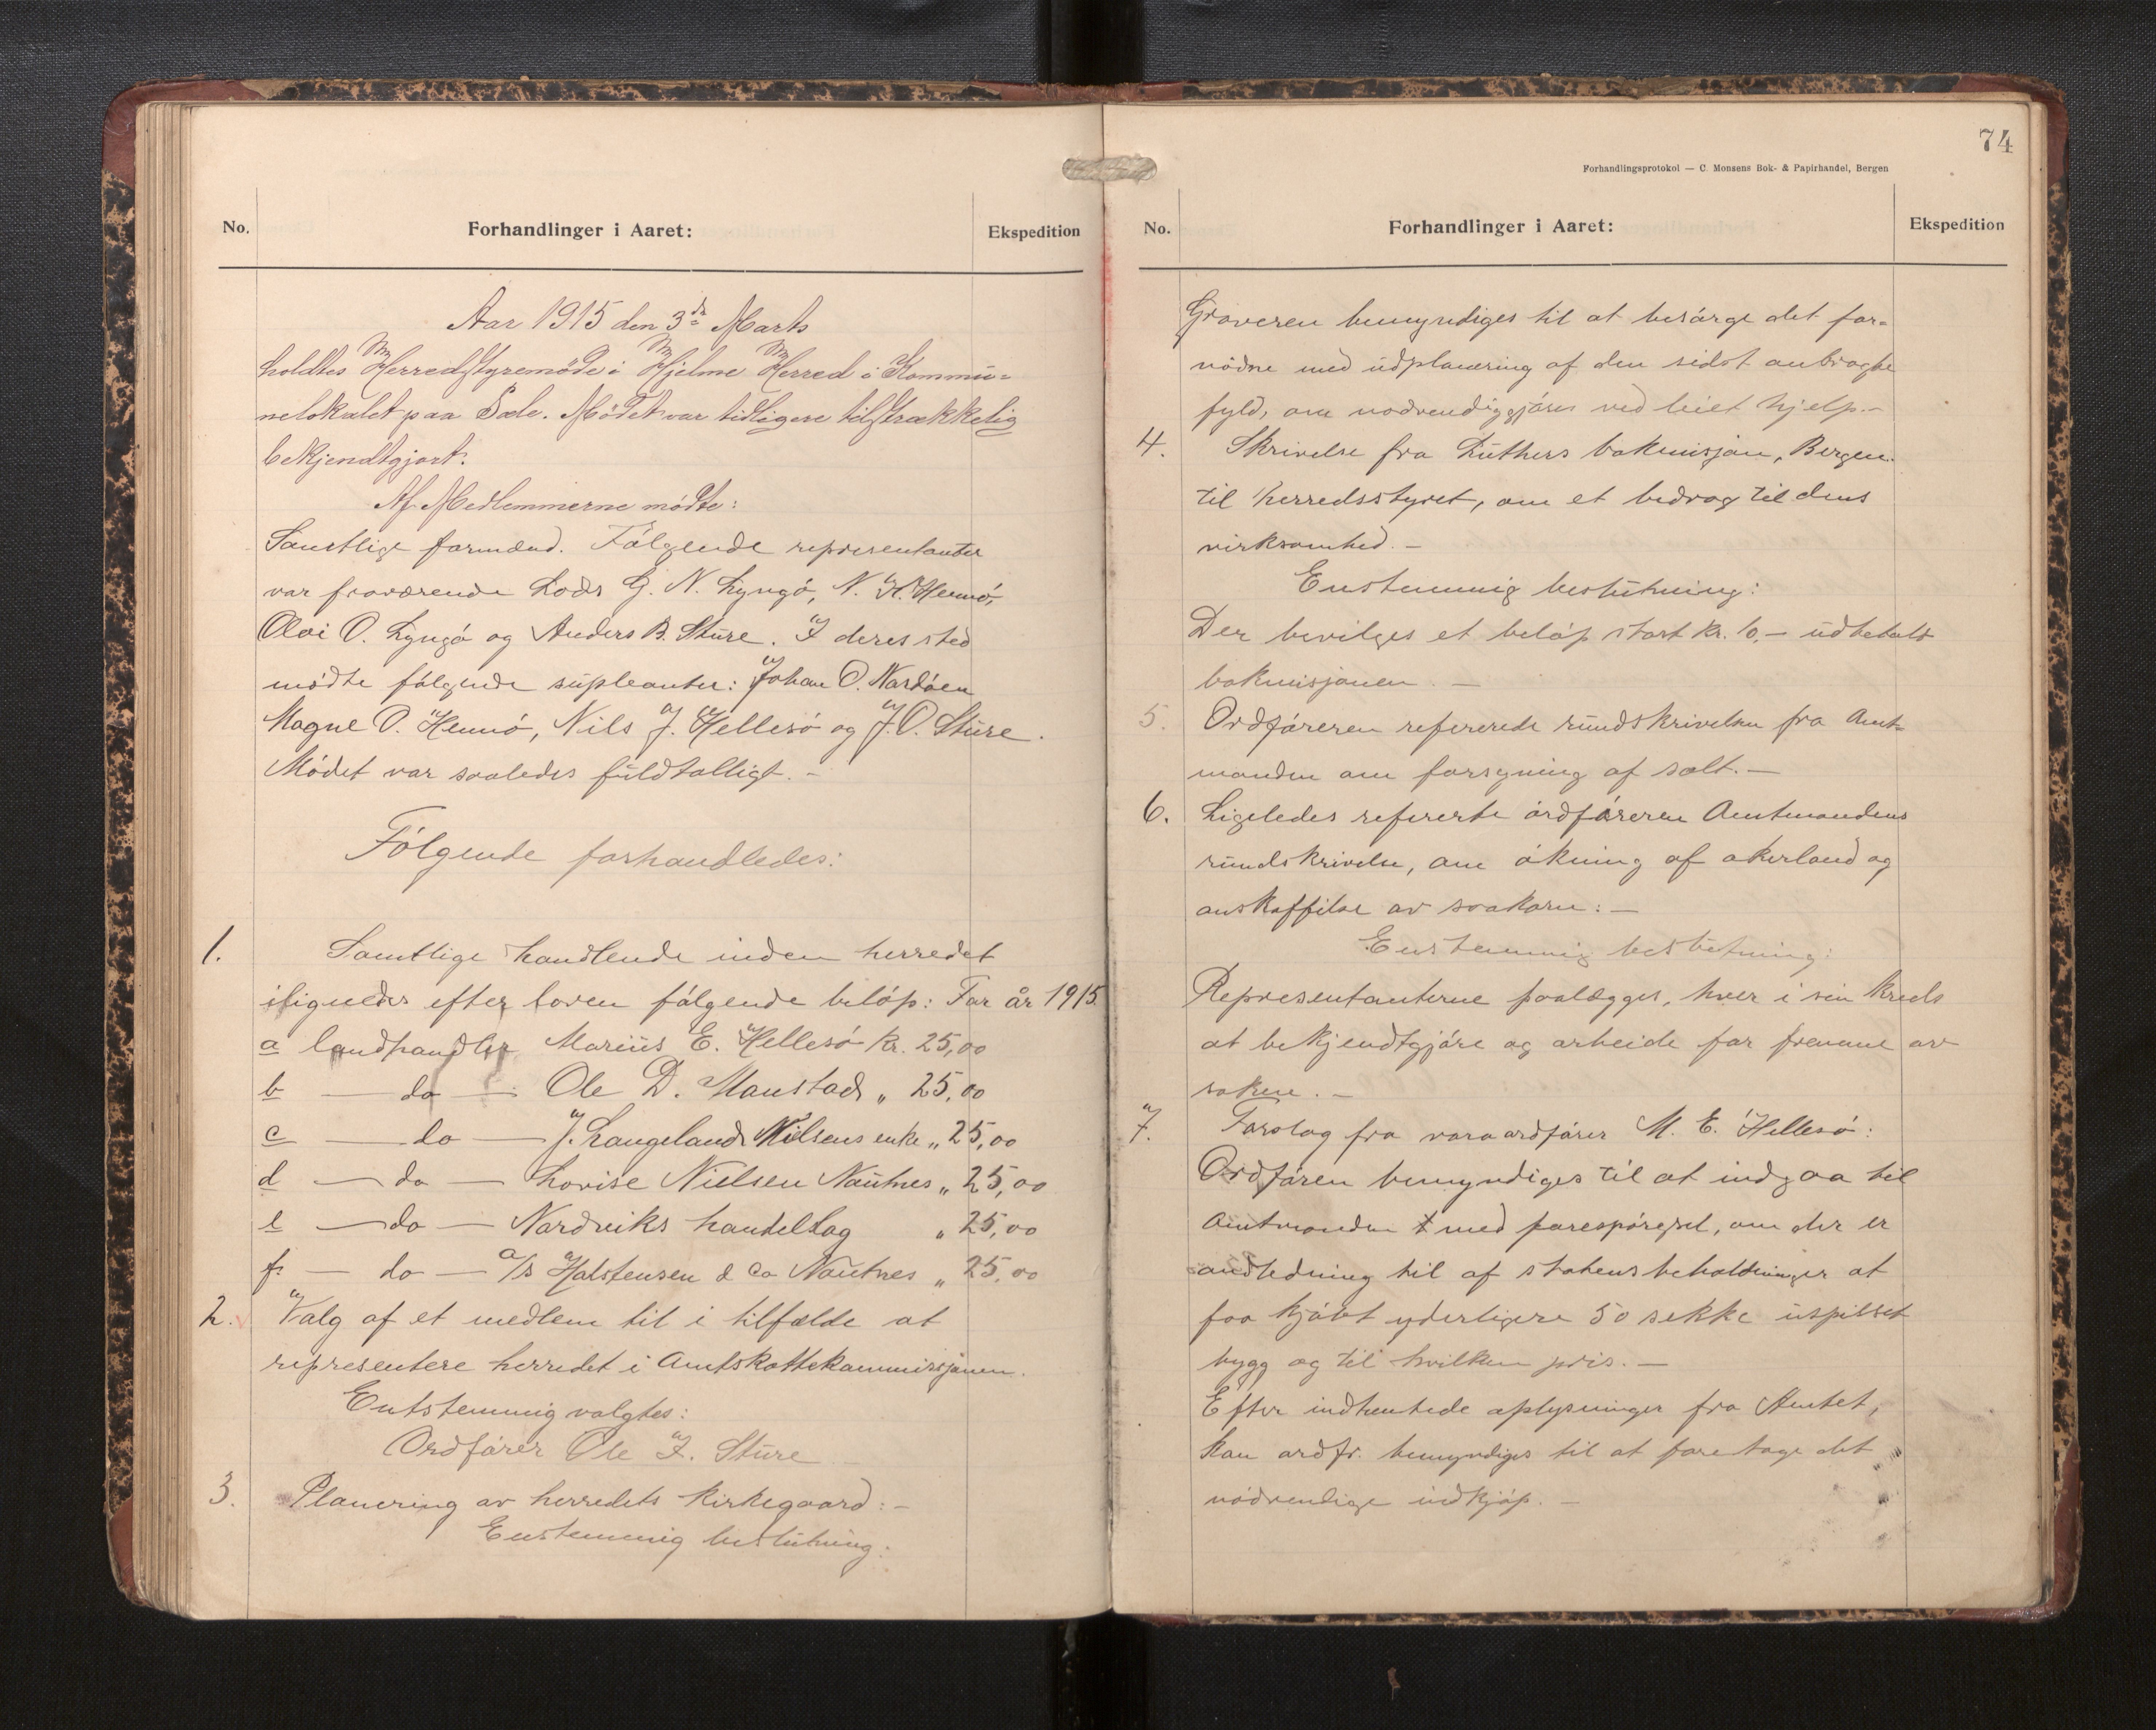 No.
Forhandlinger i Aaret:
Ekspedition
Aar 1915 den 3de Marts
holdtes Herredstyremöde i Hjelme Herred i Kommu-
nelokalet paa Sæle. Mödet var tidligere tilstrækkelig
bekjendtgjort.
Af Medlemmerne mödte:
Samtlige formænd. Fölgende representanter
var fraværende Lods G. N. Lyngö, N. H. Hernö,
Olai O. Lyngö og Anders B. Sture. I deres sted
mödte fölgende supleanter: Johan O. Nordöen
Magne O. Hernö, Nils J. Hellesö og J. O. Sture.
Mödet var saaledes fuldtalligt. -
Fölgende forhandledes:
1. Samtlige handlende inden herredet
ilignedes efter loven fölgende belöp: For år 1915.
a landhandler Marius E. Hellesö kr. 25,00
b — do — Ole D. Manstad „ 25,00
c — do — J. Langeland Nilsens enke „ 25,00
d — do — Lovise Nielsen Nautnes „ 25,00
e — do — Nordviks handelslag „ 25,00
f. — do — a/s Halstensen & Co Nautnes „ 25,00
2. Valg af et medlem til i tilfælde at
representere herredet i Amtskattekommissjonen.
Entstemmig valgtes:
Ordförer Ole I. Sture
3. Planering av herredets kirkegaard: -
Enstemmig beslutning:
74
Forhandlingsprotokol — C. Monsens Bok- & Papirhandel, Bergen
No.
Forhandlinger i Aaret:
Ekspedition
Graveren bemyndiges til at besörge det for-
nödne med udplanering af den sidst anbragte
fyld, om nodvendiggjöres ved leiet hjelp. -
4. Skrivelse fra Luthers bokmisjon, Bergen.
til herredsstyret, om et bidrag til dens
virksomhed. -
Enstemmig beslutning:
Der bevilges et belöp stort kr. 10,- udbetalt
bokmisjonen. -
5. Ordföreren refererede rundskrivelse fra Amt-
manden om forsyning af salt. -
6. Ligeledes refererte ordföreren Amtmandens
rundskrivelse, om ökning af akerland og
anskaffelse av saakorn: -
Enstemmig beslutning:
Representanterne paalægges, hver i sin kreds
at bekjendtgjöre og arbeide for fremme av
saken. -
7. Forslag fra varaordförer M. E. Hellesö:
Ordfören bemyndiges til at indgaa til
Amtmanden med forespörgsel, om der er
andledning til af statens beholdninger at
faa kjöbt yderligere 50 sekke uspilset
bygg og til hvilken pris. -
Efter indhentede oplysninger fra Amtet,
kan ordfr. bemyndiges til at foretage det
nödvendige indkjöp. -